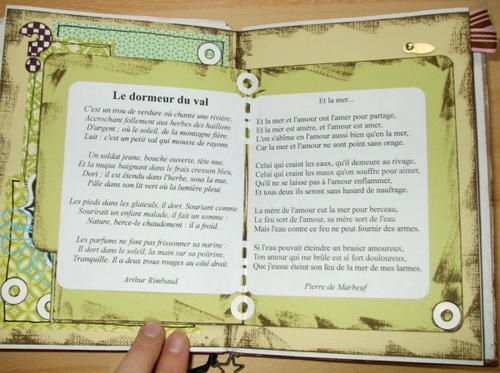 Le dormeur du val
C'est un trou de verdure où chante une rivière,
Accrochant follement aux herbes des haillons
D'argent ; où le soleil, de la montagne fière,
Luit : c'est un petit val qui mousse de rayons.
Un soldat jeune, bouche ouverte, tête nue,
Et la nuque baignant dans le frais cresson bleu,
Dort ; il est étendu dans l'herbe, sous la nue,
Pâle dans son lit vert où la lumière pleut.
Les pieds dans les glaïeuls, il dort. Souriant comme
Sourirait un enfant malade, il fait un somme :
Nature, berce-le chaudement : il a froid.
Les parfums ne font pas frissonner sa narine :
Il dort dans le soleil, la main sur sa poitrine,
Tranquille. Il a deux trous rouges au côté droit.
Arthur Rimbaud
Et la mer...
Et la mer et l'amour ont l'amer pour partage,
Et la mer est amère, et l'amour est amer,
L'on s'abîme en l'amour aussi bien qu'en la mer,
Car la mer et l'amour ne sont point sans orage.
Celui qui craint les eaux, qu'il demeure au rivage,
Celui qui craint les maux qu'on souffre pour aimer,
Qu'il ne se laisse pas à l'amour enflammer,
Et tous deux ils seront sans hasard de naufrage.
La mère de l'amour eut la mer pour berceau,
Le feu sort de l'amour, sa mère sort de l'eau
Mais l'eau contre ce feu ne peut fournir des armes.
Si l'eau pouvait éteindre un brasier amoureux,
Ton amour qui me brûle est si fort douloureux,
Que j'eusse éteint son feu de la mer de mes larmes.
Pierre de Marbeuf